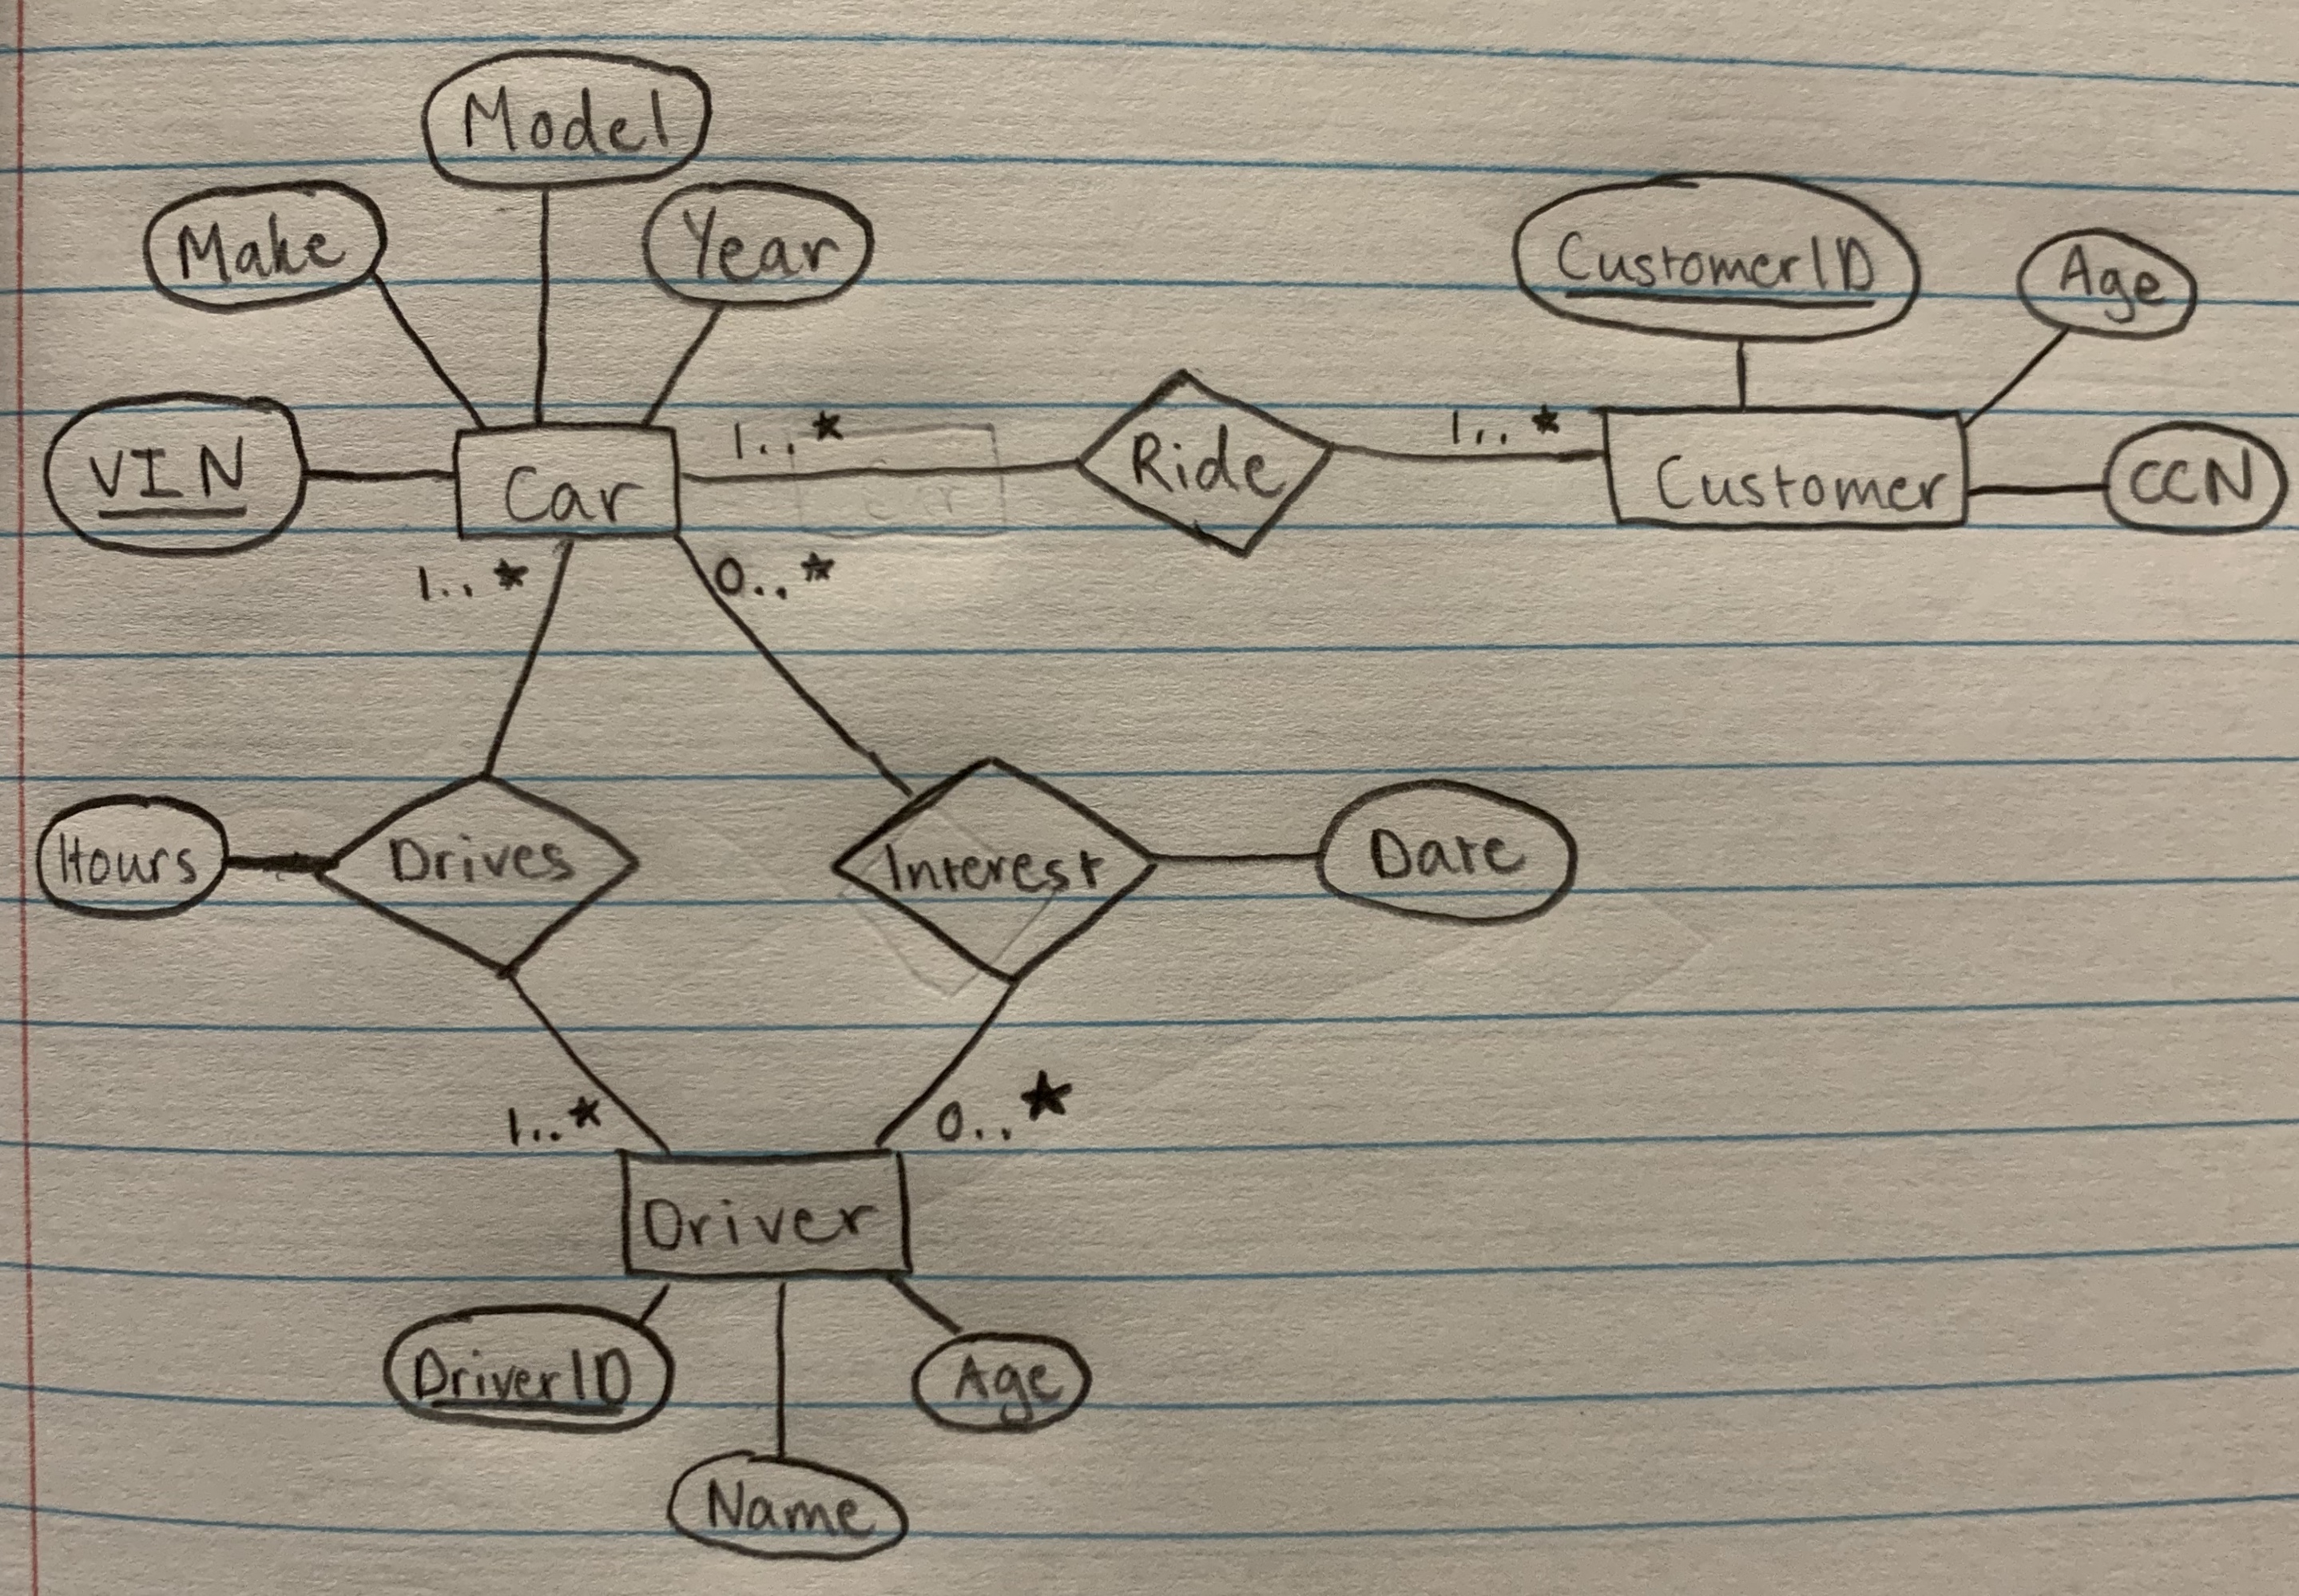 Model
Make
Year
CustomerID
Age
VIN
Car
1..*
Ride
1..*
Customer
CCN
1..*
0..*
Hours
Drives
Interest
Date
1..*
0..*
Driver
DriverID
Age
Name